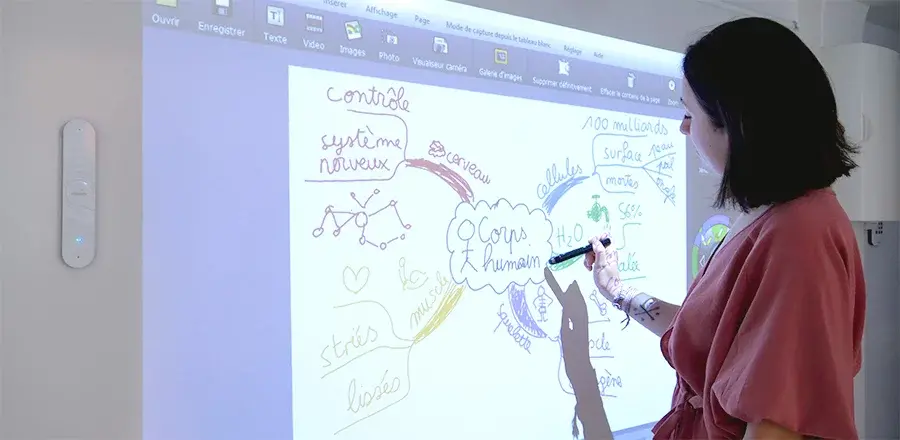 Insérer
Affichage
Page
Mode de capture depuis le tableau blanc
Réglage
Aide
Ouvrir
Enregistrer
Texte
Video
Images
Photo
Visualiseur caméra
Galerie d'images
Supprimer définitivement
Effacer le contenu de la page
Zoom
contrôle
système
nerveux
cerveau
100 milliards
surface
peau
poil
mortes
cellules
Corps
humain
H2O
56%
muscle
striés
lissés
squelette